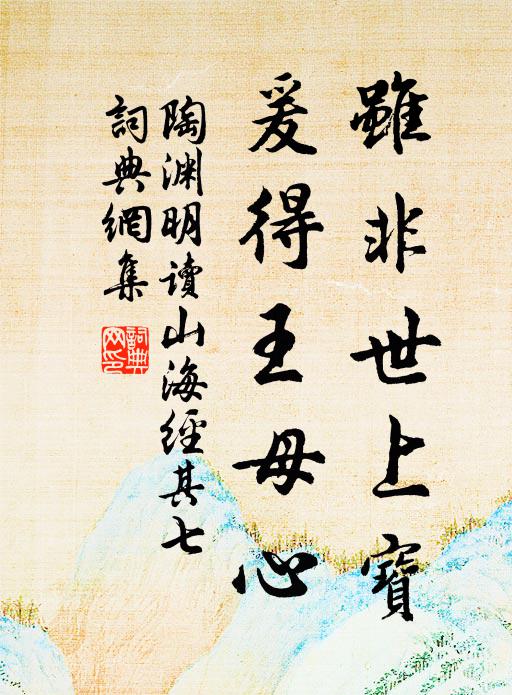 雖非世上寶
爰得王母心
陶渊明讀山海經其七
詞典網集
詞典網印